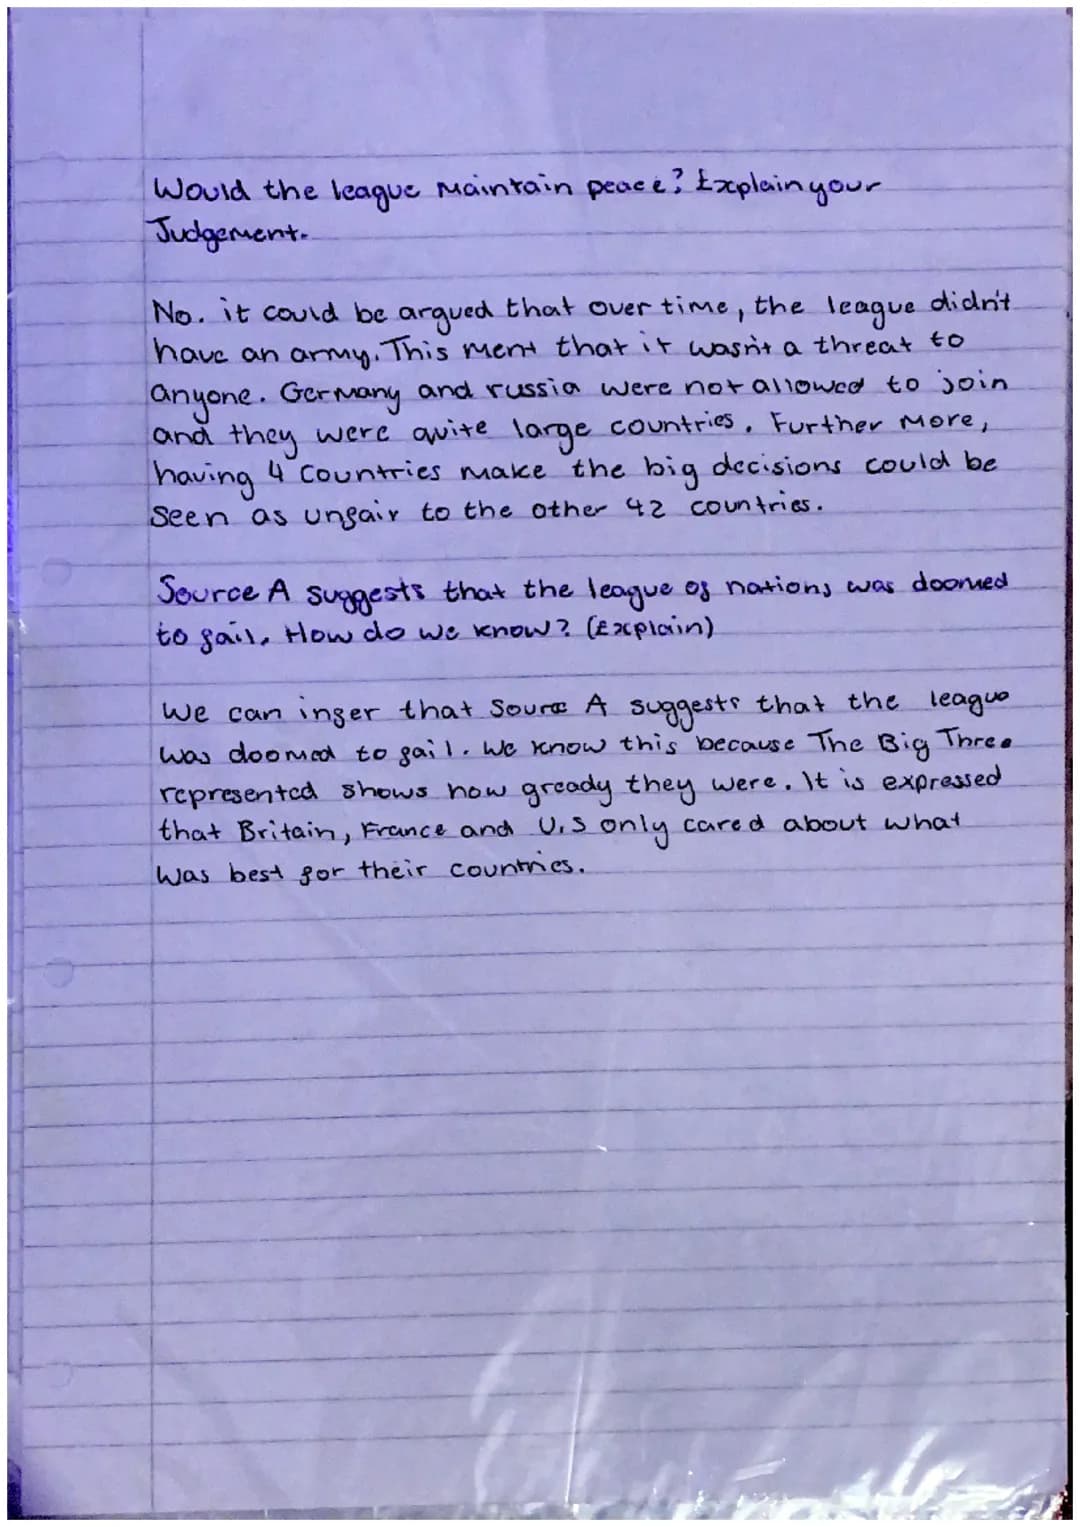 Would the league Maintain peace? Explain your
Judgement.
No. it could be argued that over time, the league didn't
have an army. This ment that it wasn't a threat to
anyone. Germany and russia were not allowed to join
and they were quite large countries. Further More,
having 4 Countries make the big decisions could be
Seen as unfair to the other 42 countries.
Source A suggests that the league of nations was doomed
to fail. How do we know? (Explain)
We can infer that Source A suggests that the league
was doomed to fail. We know this because The Big Three
represented shows how gready they were. It is expressed
that Britain, France and U.S only cared about what
was best for their countries.